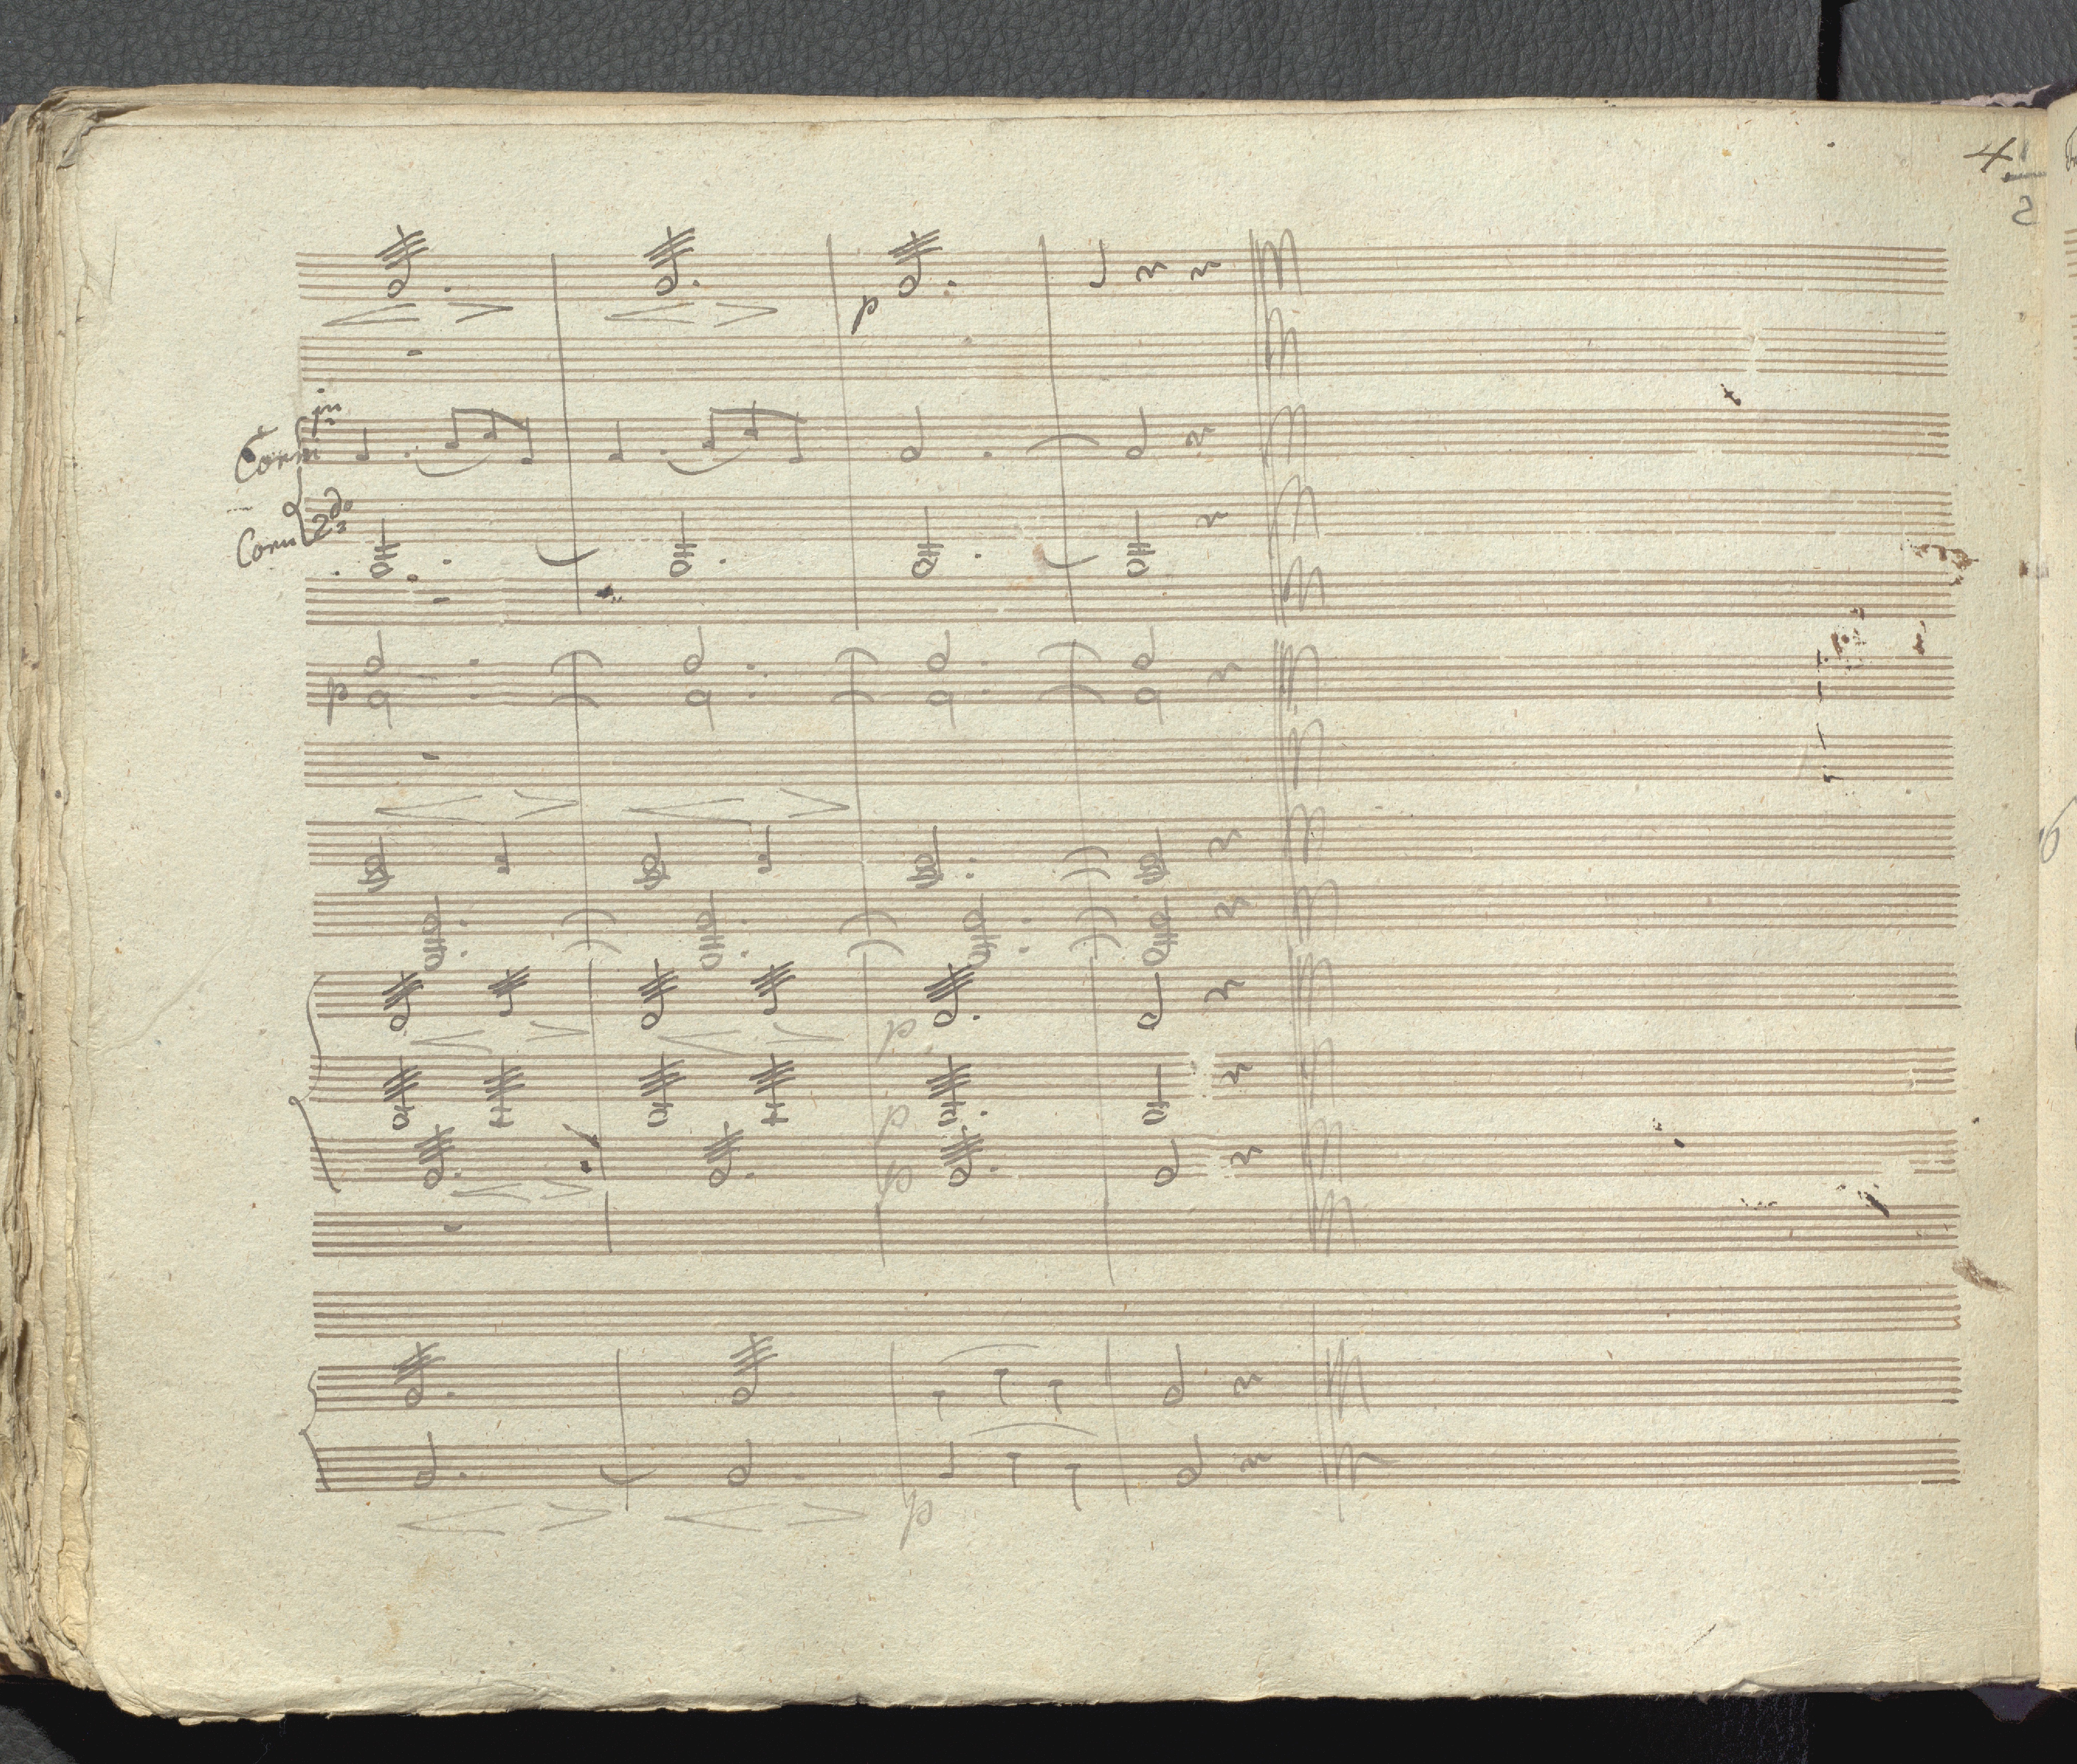 4
2
p
Corni
Corni 2do
p
p
p
p
p